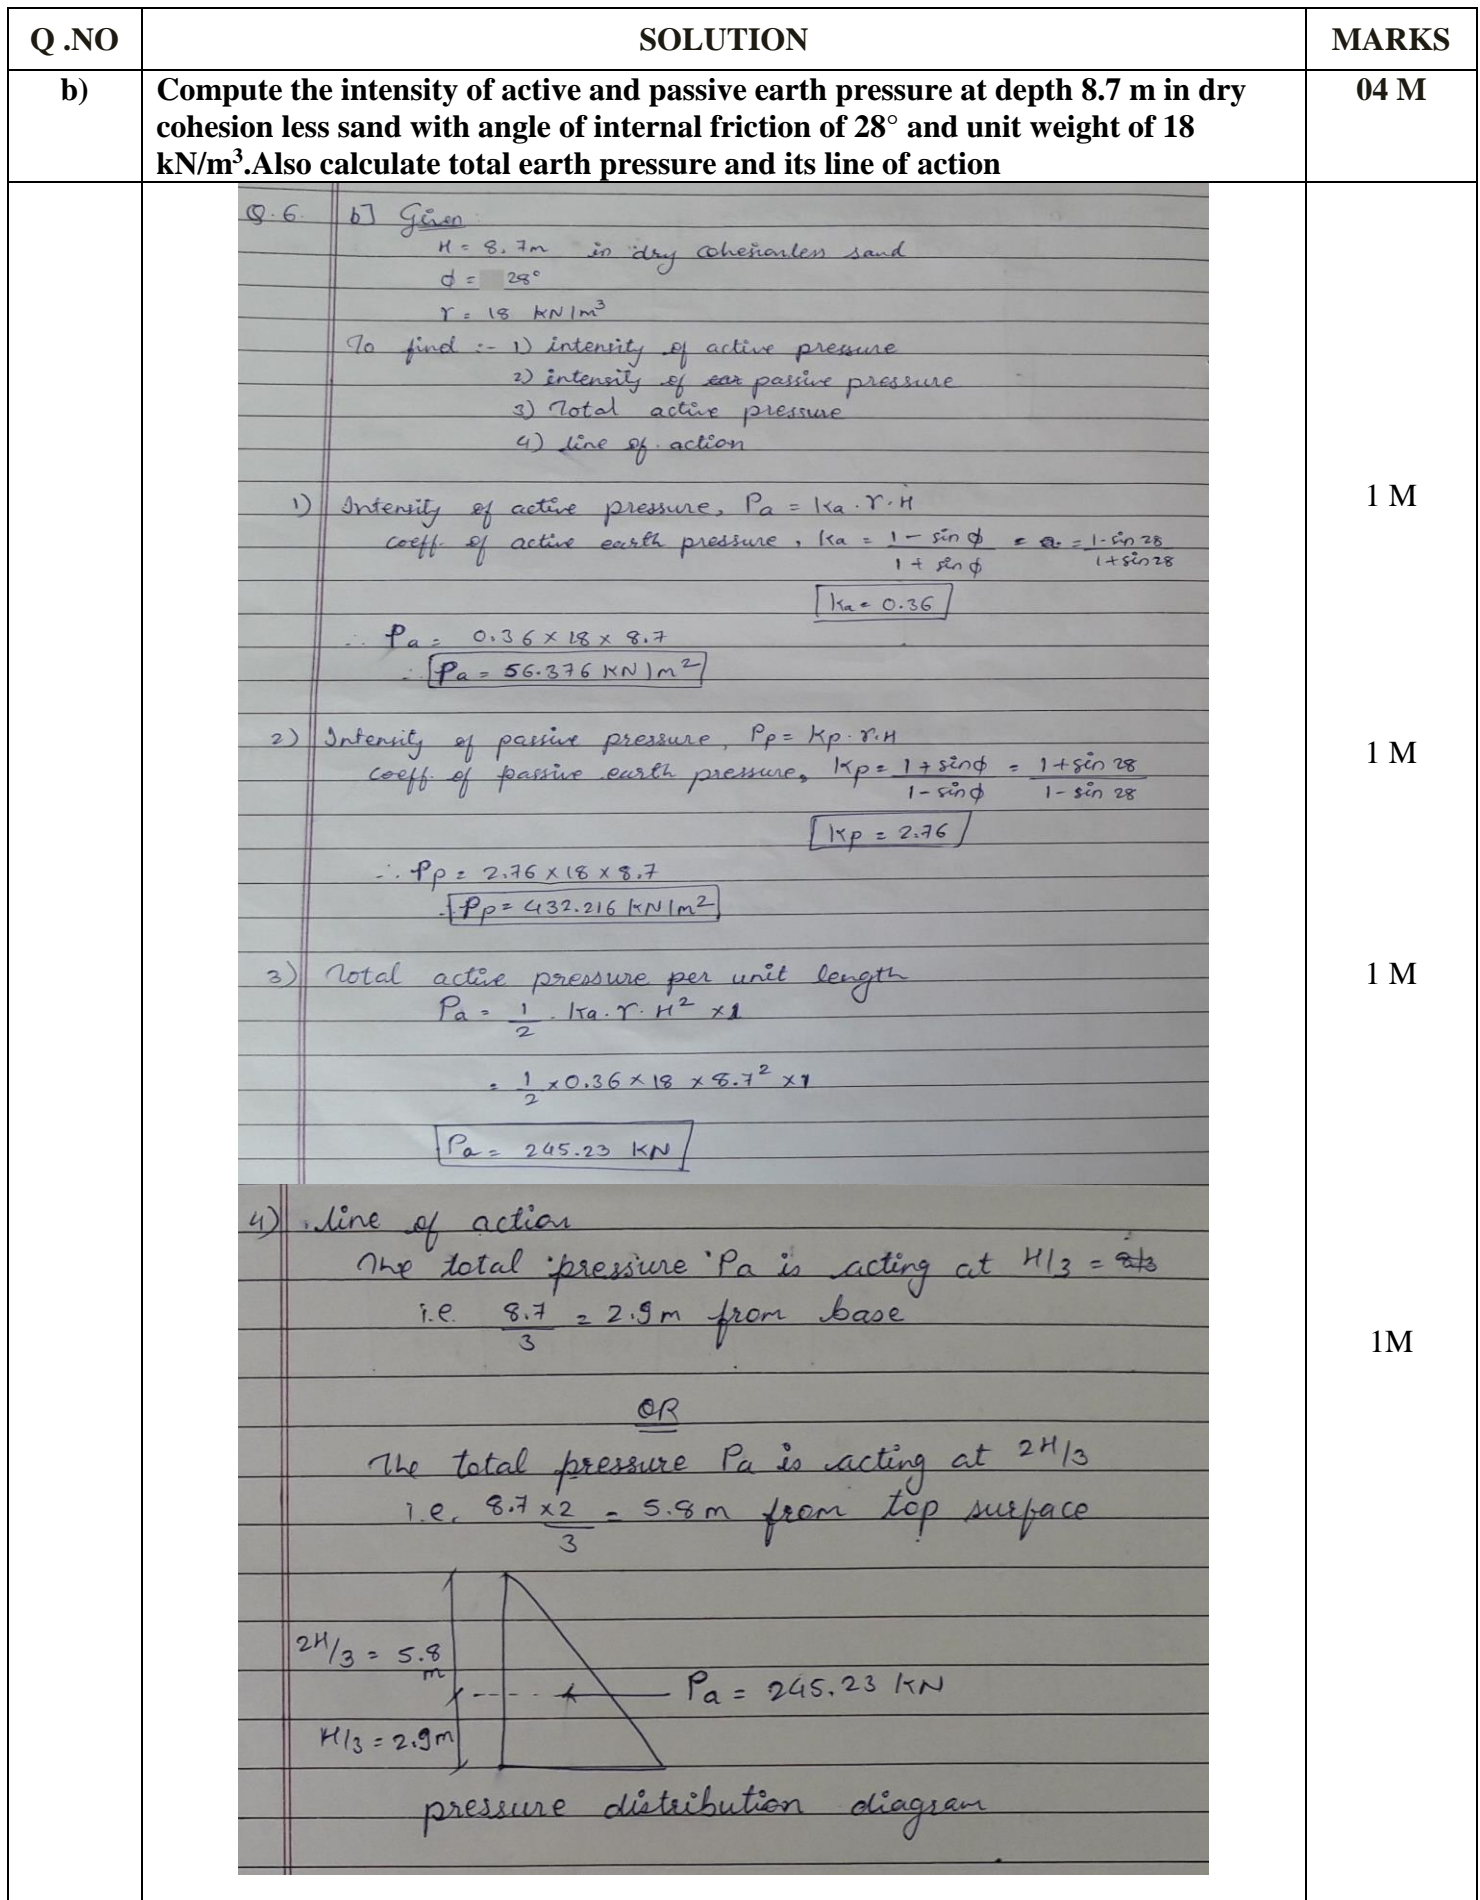 Q .NO SOLUTION MARKS
b) Compute the intensity of active and passive earth pressure at depth 8.7 m in dry 04 M
cohesion less sand with angle of internal friction of 28° and unit weight of 18
kN/m³.Also calculate total earth pressure and its line of action
Q.6. b] Given
H = 8.7m in dry cohesionless sand
ϕ = 28°
γ = 18 KN/m³
To find :- 1) intensity of active pressure
2) intensity of ear passive pressure
3) Total active pressure
4) line of action
1) Intensity of active pressure, Pa = Ka . γ . H 1 M
coeff. of active earth pressure, Ka = (1 - sin ϕ)/(1 + sin ϕ) = = (1 - sin 28)/(1 + sin 28)
Ka = 0.36
∴ Pa = 0.36 × 18 × 8.7
∴ Pa = 56.376 KN/m²
2) Intensity of passive pressure, Pp = Kp . γ . H 1 M
coeff. of passive earth pressure, Kp = (1 + sin ϕ)/(1 - sin ϕ) = (1 + sin 28)/(1 - sin 28)
Kp = 2.76
∴ Pp = 2.76 × 18 × 8.7
∴ Pp = 432.216 KN/m²
3) Total active pressure per unit length 1 M
Pa = 1/2 . Ka . γ . H² × 1
= 1/2 × 0.36 × 18 × 8.7² × 1
Pa = 245.23 KN
4) line of action
The total pressure Pa is acting at H/3 = 8/3
i.e. 8.7/3 = 2.9m from base
1M
OR
The total pressure Pa is acting at 2H/3
i.e. 8.7 × 2/3 = 5.8m from top surface
2H/3 = 5.8
m
Pa = 245.23 KN
H/3 = 2.9m
pressure distribution diagram